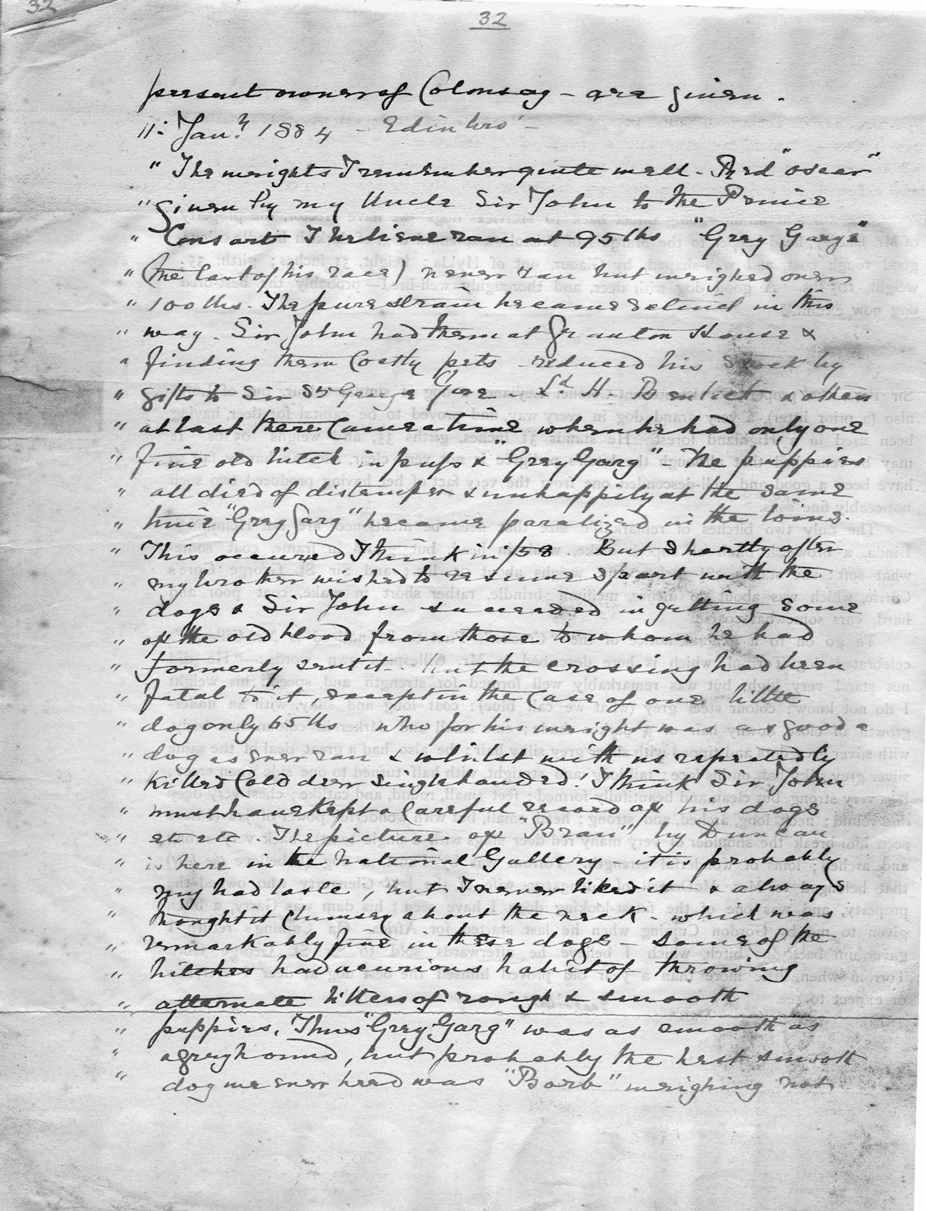 32
32
present owner of Colonsay - are given.
11: Jany 1884 - Edinbro' -
" The weights I remember quite well - Red "Oscar"
" given by my Uncle Sir John to the Prince
" Consort I believe ran at 95 lbs "Grey Garg"
" (the last of his race) never ran but weighed over
" 100 lbs. The pure strain became extinct in this
" way. Sir John had them at Granton House &
" finding them Costly pets - reduced his Stock by
" gifts to Sir St George Gore - Ld H. Bentick & others
" at last there Came a time when he had only one
" fine old bitch in pups & "Grey Garg" - The puppies
" all died of distemper & unhappily at the same
" time "Grey Garg" became paralized in the loins.
" This occured I think in /58. But Shortly after
" my brother wished to resume Sport with the
" dogs & Sir John succeeded in getting Some
" of the old blood from those to whom he had
" formerly sent it but the crossing had been
" fatal to it except in the Case of one little
" dog only 65 lbs who for his weight was as good a
" dog as ever ran & whilst with us repeatedly
" Killed Cold deer Single handed! I think Sir John
" must have Kept a Careful record of his dogs
" etc etc. The picture of "Bran" by Duncan
" is here in the National Gallery - it is probably
" my bad taste, but I never liked it & always
" thought it Clumsy about the neck - which was
" remarkably fine in these dogs - Some of the
" bitches had a curious habit of throwing
" alternate litters of rough & smooth
" puppies, Thus "Grey Garg" was as smooth as
" a greyhound, but probably the best smooth
" dog we ever bred was "Barb" weighing not